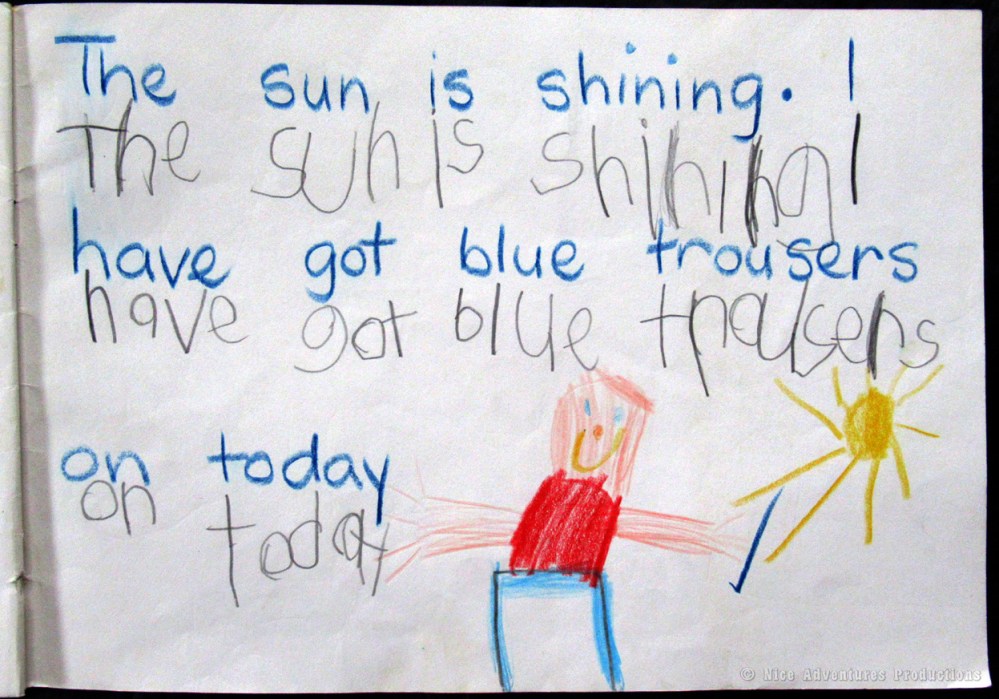 The sun is shining. I
The sun is shining I
have got blue trousers
have got blue trousers
on today
on today
© Nice Adventures Productions